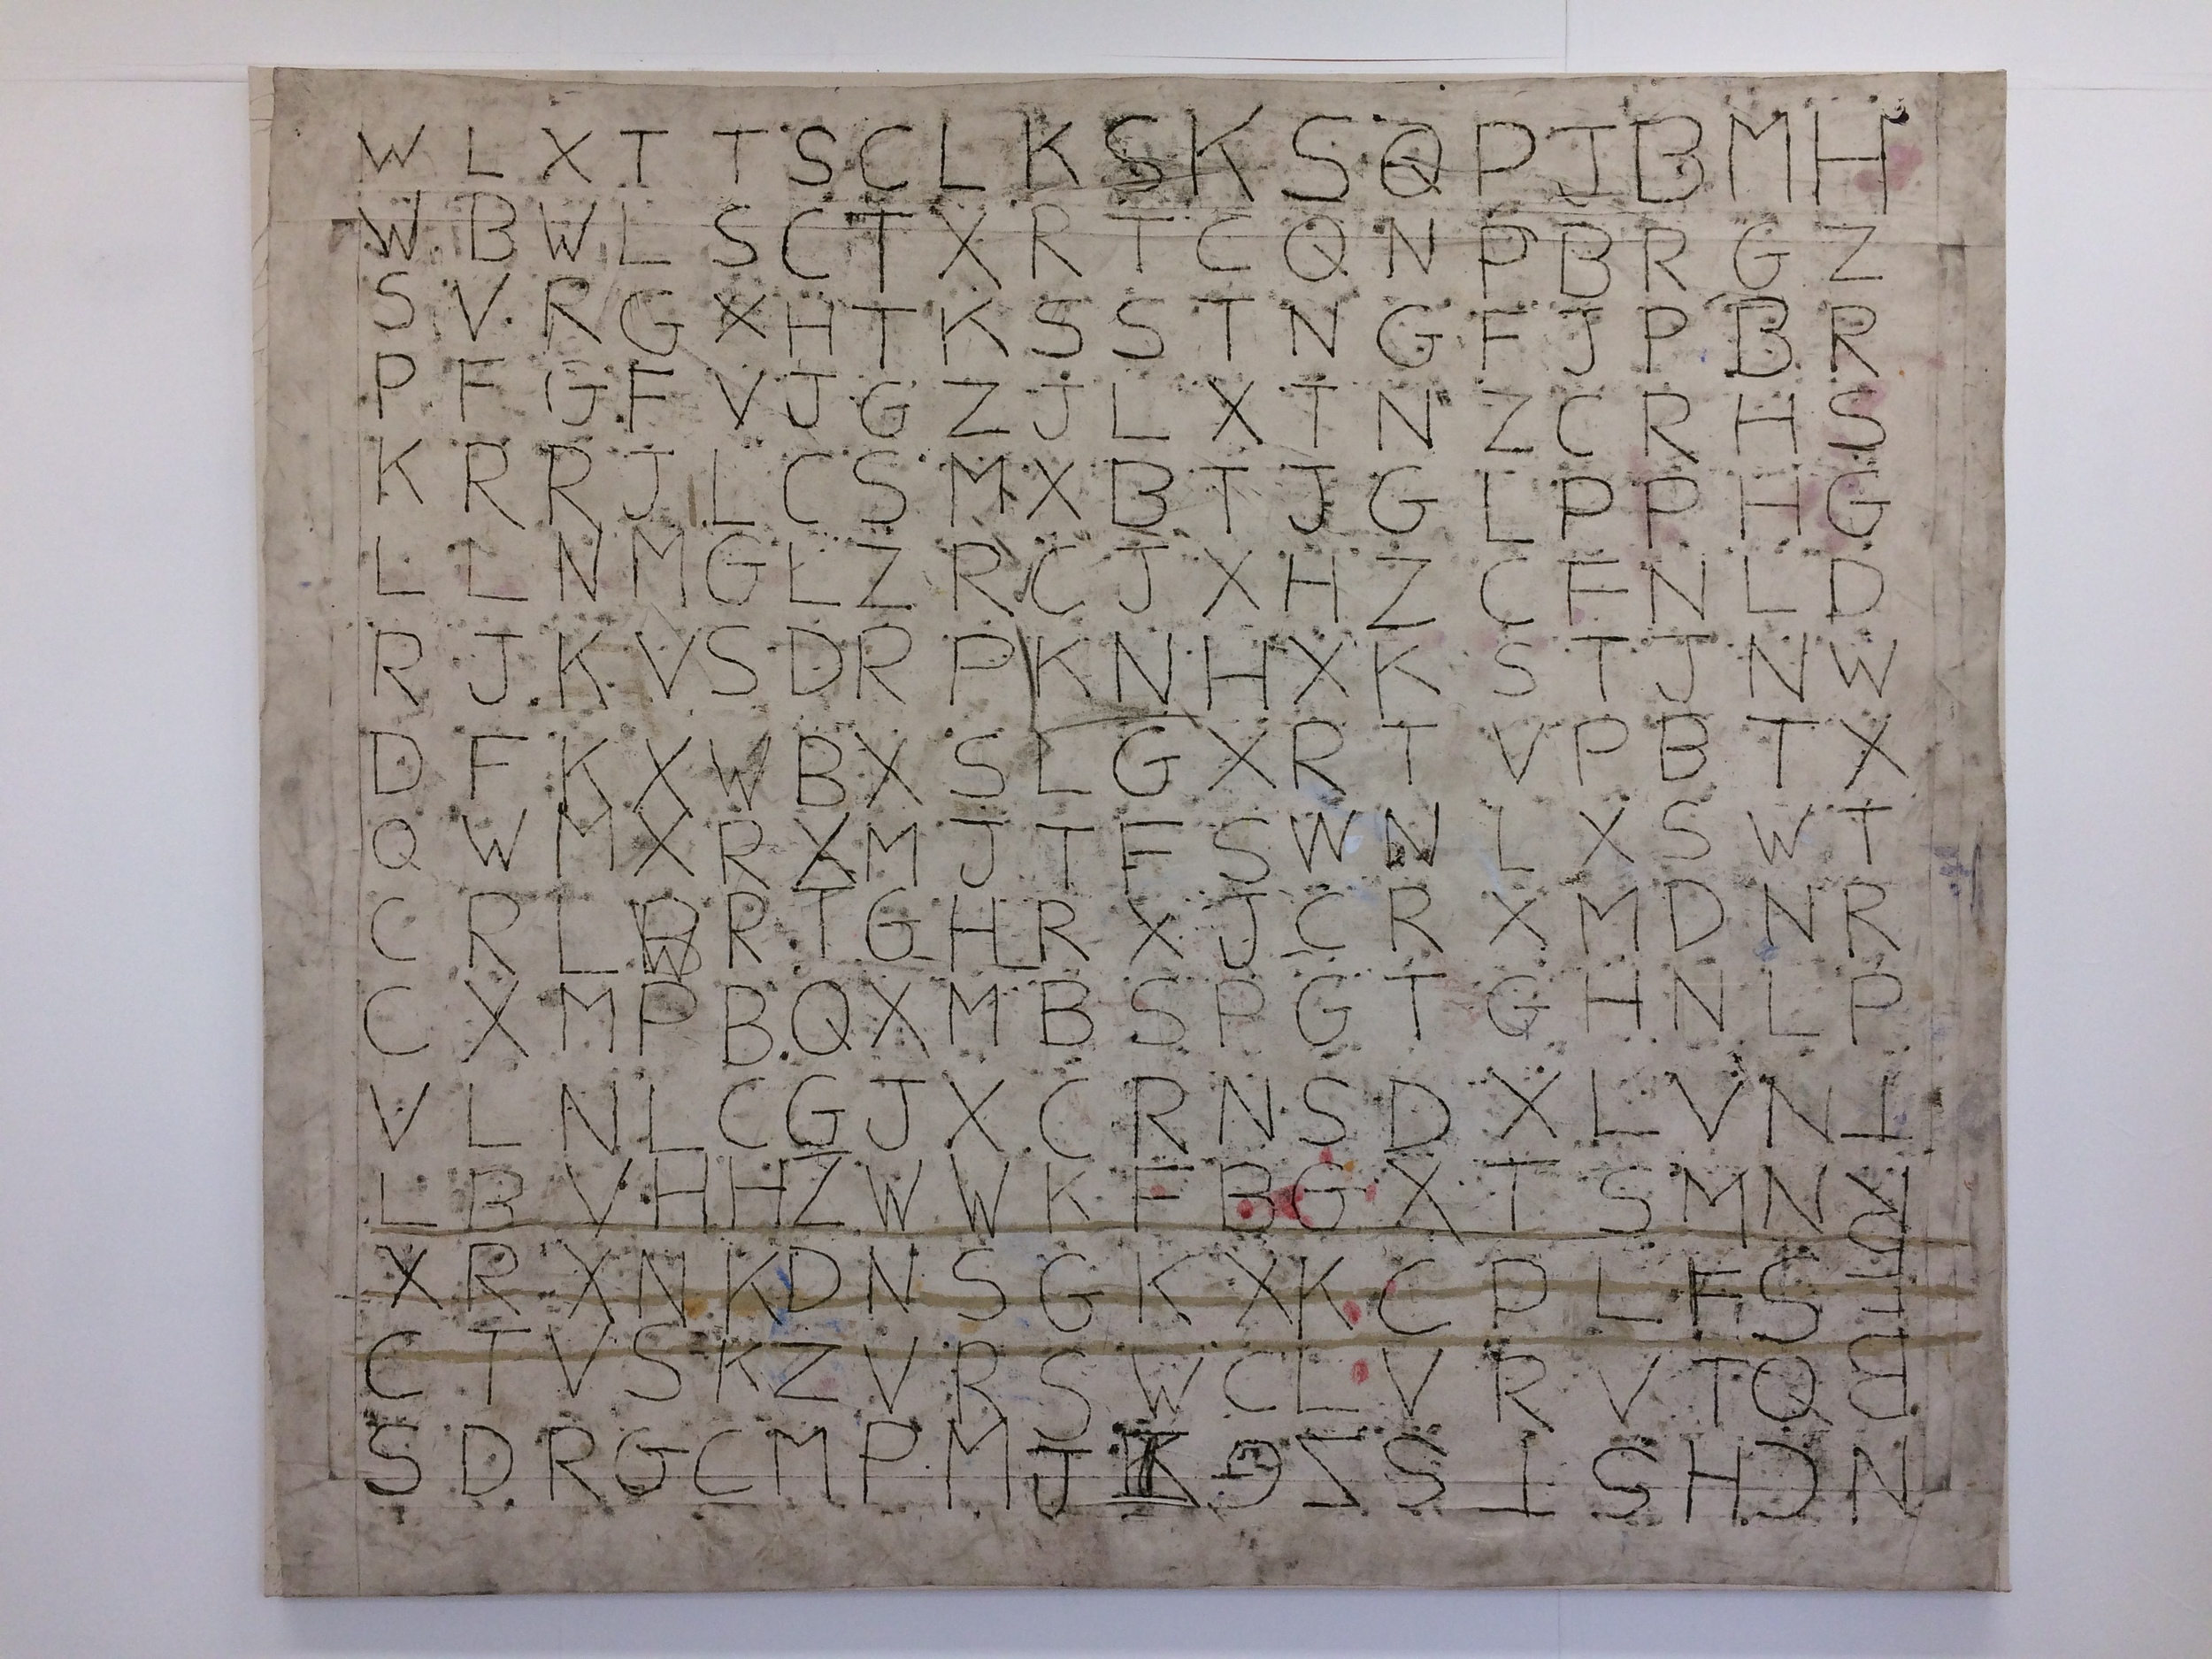 W L X T T S C L K S K S Q P J B M H
W B W L S C T X R T C Q N P B R G Z
S V R G X H T K S S T N G F J P B R
P F G F V J G Z J L X T N Z C R H S
K R R J L C S M X B T J G L P P H G
L L N M G L Z R C J X H Z C F N L D
R J K V S D R P K N H X K S T J N W
D F K X W B X S L G X R T V P B T X
Q W M X R X M J T F S W N L X S W T
C R L R T G H R X J C R X M D N R
C X M P B Q X M B S P G T G H N L P
V L N L C G J X C R N S D X L V N T
L B V H H Z W W K F B G X T S M N K
X R X N K D N S G K X K C P L F S
C T V S K Z V R S W C L V R V T Q
S D R G C M P M J K G Z S T S H C N